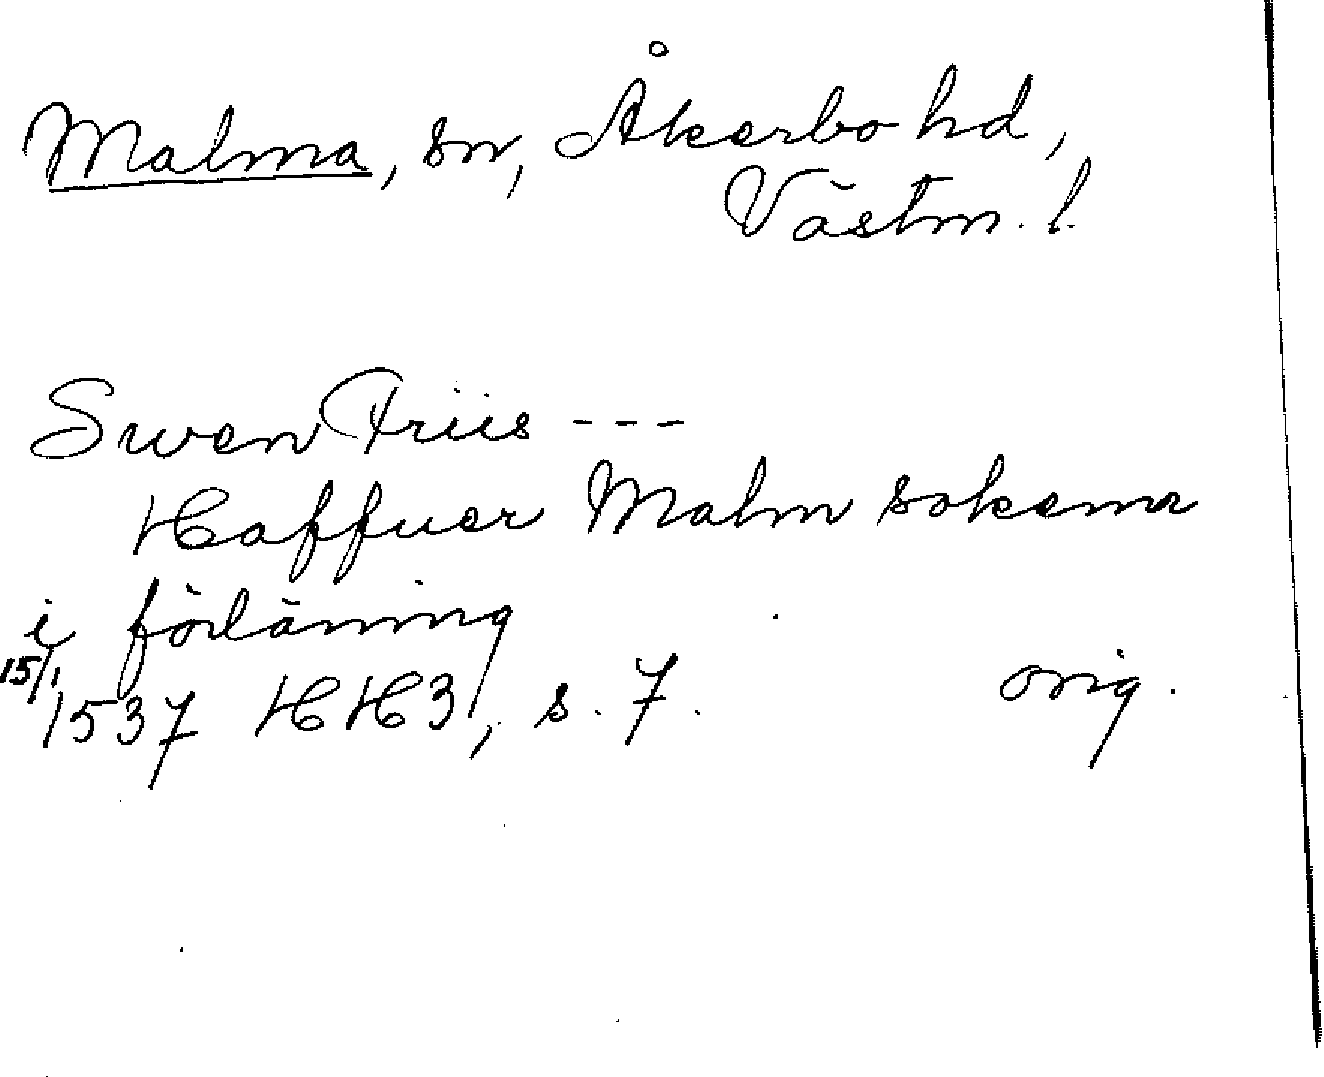 Malma, sn, Åkerbo hd,
Västm. l.
Swen Friis ---
Haffuer Malm sokenn
i förläning
15/1
1537 HH3, s. 7.
orig.